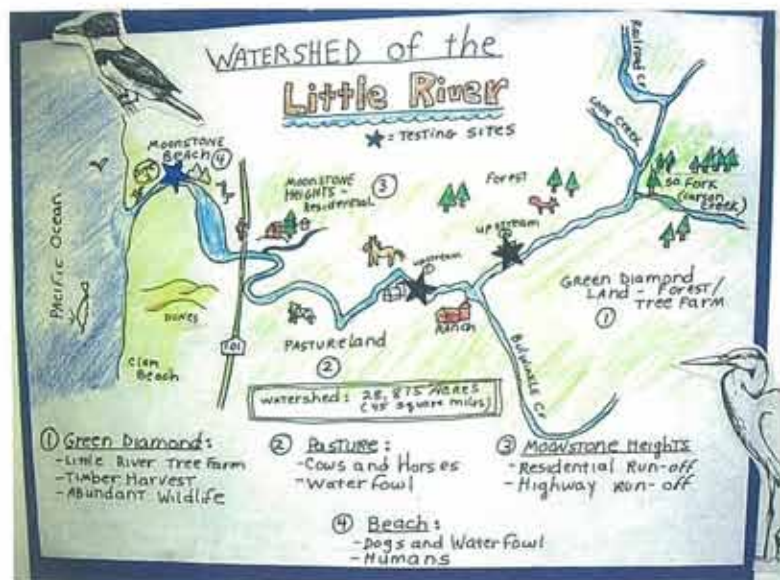 WATERSHED of the
Little River
★ = TESTING SITES
Railroad Cr
MOONSTONE
BEACH ④
MOONSTONE
HEIGHTS -
Residential
③
Forest
So. Fork
(Carson
Creek)
upstream
upstream
Pacific Ocean
DUNES
101
PASTURELAND
②
Ranch
Bulwinkle Cr
GREEN DIAMOND
LAND - FOREST/
TREE FARM
①
Clam
Beach
watershed: 28,875 Acres
(45 square miles)
① Green Diamond:
-Little River Tree Farm
-Timber Harvest
-Abundant Wildlife
② Pasture:
-Cows and Horses
-Water Fowl
③ Moonstone Heights
-Residential Run-off
-Highway Run-off
④ Beach:
-Dogs and Water Fowl
-Humans